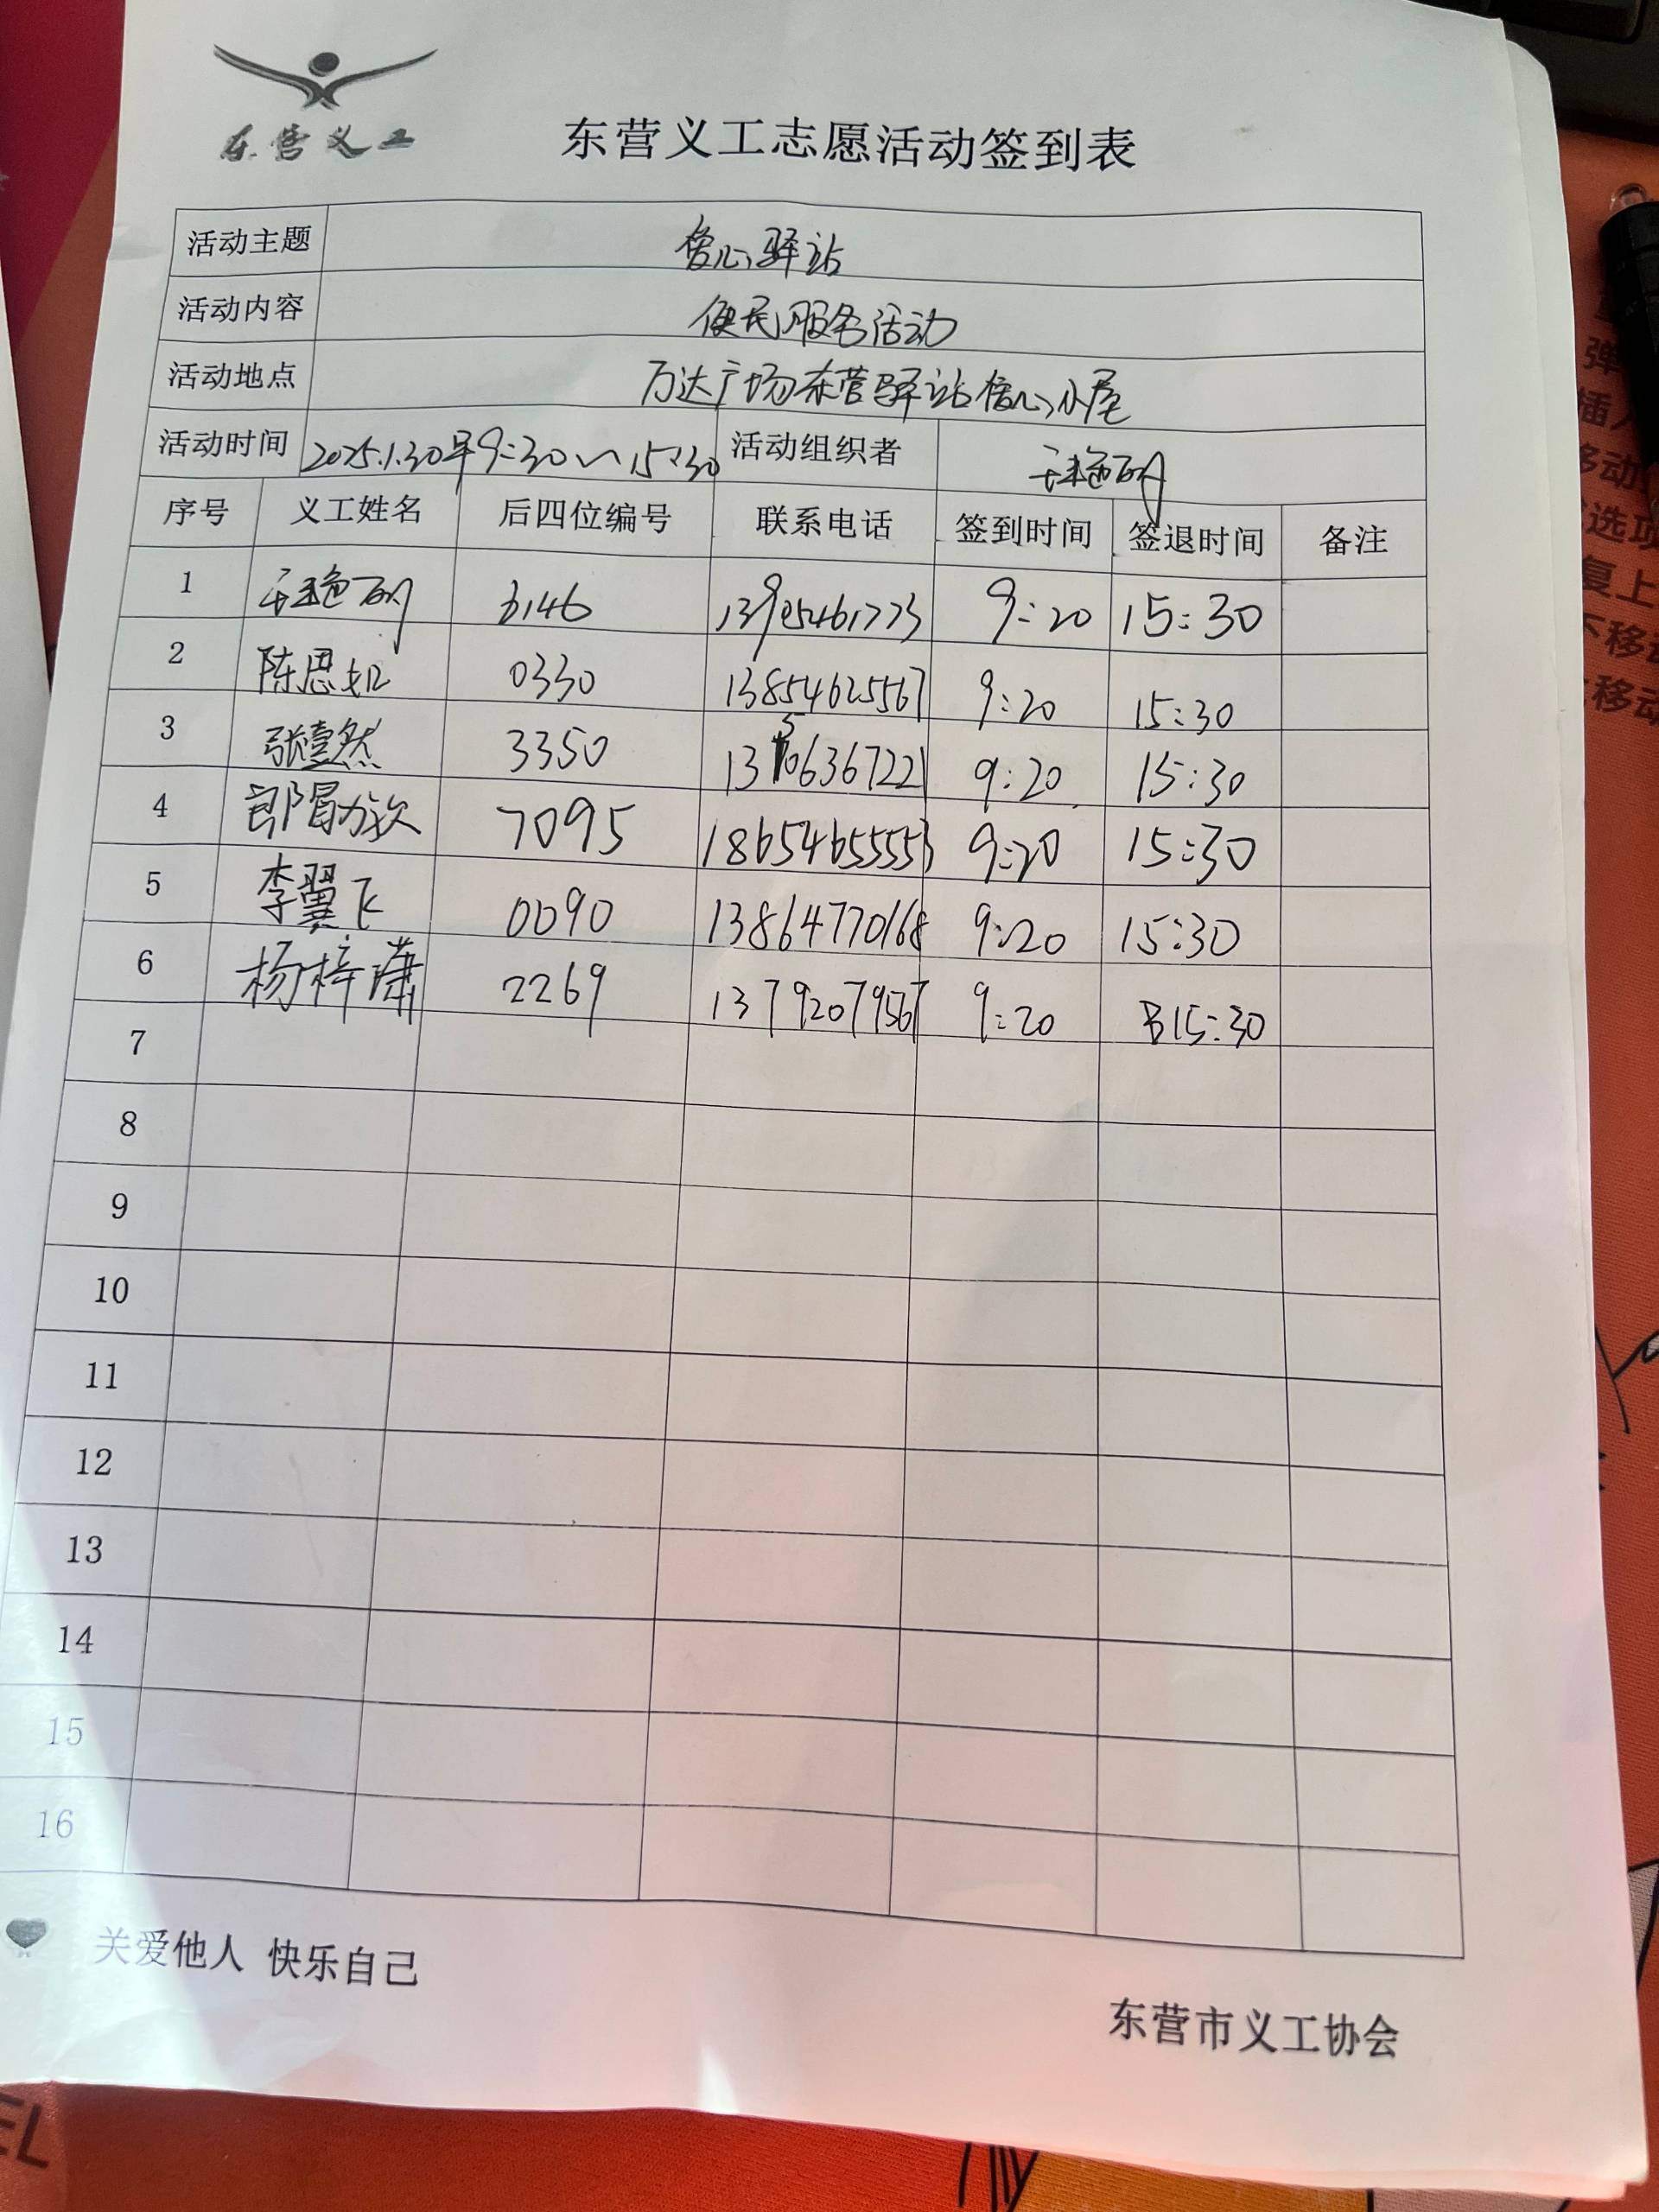 东营义工
东营义工志愿活动签到表
活动主题 爱心驿站
活动内容 便民服务活动
活动地点 万达广场东营驿站信心小屋
活动时间 2025.1.30早9:30~15:30 活动组织者
序号 义工姓名 后四位编号 联系电话 签到时间 签退时间 备注
1 6146 13905461773 9:20 15:30
2 陈思如 0330 13854625567 9:20 15:30
3 张壹然 3350 9:20 15:30
4 7095 18654655553 9:20 15:30
5 李翼飞 0090 13864770168 9:20 15:30
6 杨梓潇 2269 13792079567 9:20 15:30
7
8
9
10
11
12
13
14
15
16
关爱他人 快乐自己
东营市义工协会